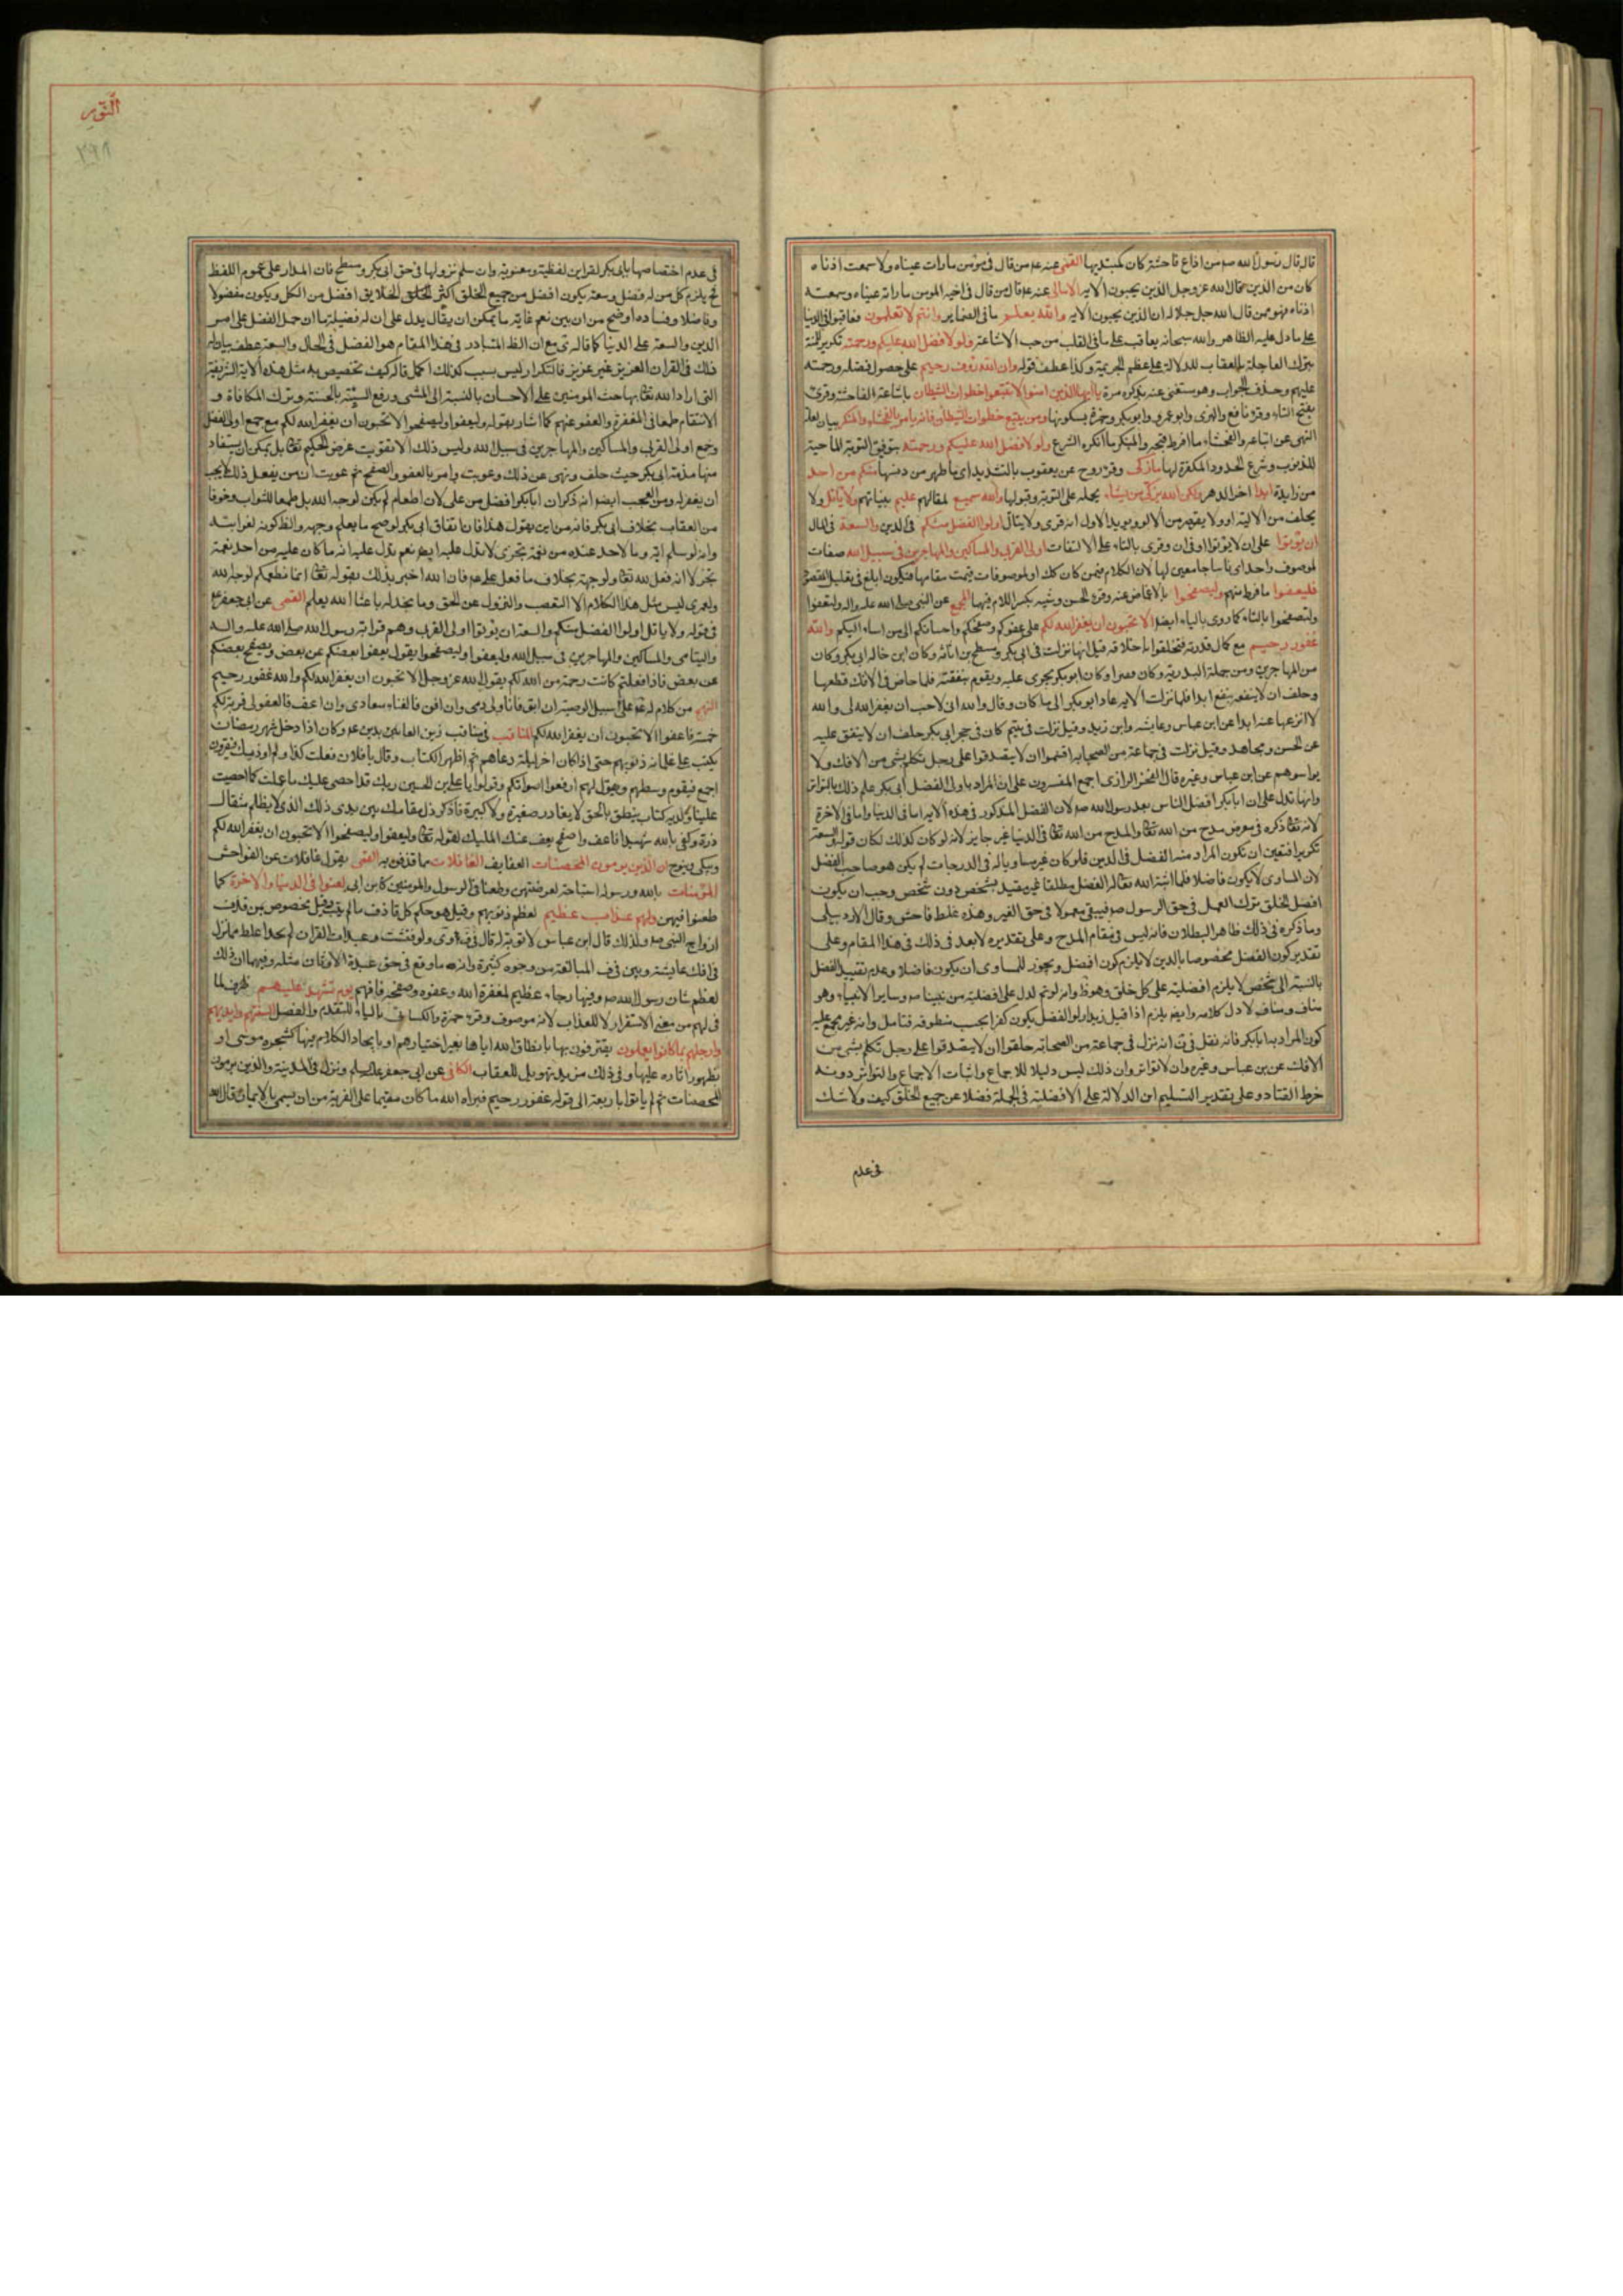 قال قال رسول الله صم من اذاع فاحشة كان كمبتديها القمي عنه عم من قال في مؤمن ما رات عيناه ولا سمعت اذناه
كان من الذين قال الله عز وجل الذين يحبون الاية الامالي عنه عم قال من قال في اخيه المومن ما راته عيناه وسمعته
اذناه فهو ممن قال الله جل جلاله ان الذين يحبون الاية والله يعلم ما في الضماير وانتم لا تعلمون فعاقبوا في الدنيا
على ما دل عليه الظاهر والله سبحانه يعاقب على ما في القلب من حب الاشاعة ولولا فضل الله عليكم ورحمته تكرير للمنة
بترك المعاجلة بالعقاب للدلالة على عظم الجريمة وكذا عطف قوله وان الله رؤف رحيم على حصول فضله ورحمته
عليهم وحذف الجواب وهو مستغنى عنه بذكره مرة يا ايها الذين امنوا لا تتبعوا خطوات الشيطان باشاعة الفاحشة وقرئ
بفتح الطاء وقرء نافع والبزي وابو عمرو وابو بكر وحمزة بسكونها ومن يتبع خطوات الشيطان فانه يامر بالفحشاء والمنكر بيان لعلة
النهي عن اتباعه والفحشاء ما افرط قبحه والمنكر ما انكره الشرع ولولا فضل الله عليكم ورحمته بتوفيق التوبة الماحية
للذنوب وشرع الحدود المكفرة لها ما زكى وقرء روح عن يعقوب بالتشديد اي ما طهر من دنسها منكم من احد
من زايدة ابدا اخر الدهر ولكن الله يزكي من يشاء بحمله على التوبة وقبولها والله سميع لمقالهم عليم بنياتهم ولا ياتل ولا
يحلف من الالية او ولا يقصر من الالو ويويد الاول انه قرئ ولا يتال اولوا الفضل منكم في الدين والسعة في المال
ان يؤتوا على ان لا يؤتوا او في ان وقرئ بالتاء على الالتفات اولى القربى والمساكين والمهاجرين في سبيل الله صفات
لموصوف واحد اي ناسا جامعين لها لان الكلام فيمن كان كك او لموصوفات قيمت مقامها فيكون ابلغ في تعليل المقصود
فليعفوا ما فرط منهم وليصفحوا بالاغماض عنه وقرء الحسن بكسر اللام فيهما المجمع عن النبي صلى الله عليه واله ولتعفوا
ولتصفحوا بالتاء كما روى بالياء ايضا الا تحبون ان يغفر الله لكم على عفوكم وصفحكم واحسانكم الى من اساء اليكم والله
غفور رحيم مع كمال قدرته فتخلقوا باخلاقه قيل انها نزلت في ابي بكر ومسطح بن اثاثه وكان ابن خالة ابي بكر وكان
من المهاجرين ومن جملة البدرية وكان فقيرا وكان ابو بكر يجرى عليه ويقوم بنفقته فلما خاض في الافك قطعها
وحلف ان لا ينفعه بنفع ابدا فلما نزلت الاية عاد ابو بكر الى ما كان وقال والله اني لاحب ان يغفر الله لي والله
لا انزعها عنه ابدا عن ابن عباس وعايشه وابن زيد وقيل نزلت في يتيم كان في حجر ابي بكر حلف ان لا ينفق عليه
عن الحسن ومجاهد وقيل نزلت في جماعة من الصحابه اقسموا ان لا يتصدقوا على رجل تكلم بشئ من الافك ولا
يواسوهم عن ابن عباس وغيره قال الفخر الرازي اجمع المفسرون على ان المراد باولى الفضل ابى بكر علم ذلك بالتواتر
وانها تدل على ان ابا بكر افضل الناس بعد رسول الله صم لان الفضل المذكور في هذه الاية اما في الدنيا واما في الاخرة
لانه تعا ذكره في معرض مدح من الله تعا والمدح من الله تعا في الدنيا غير جايز لانه لو كان كذلك لكان قوله والسعة
تكريرا فتعين ان تكون المراد منه الفضل في الدين فلو كان غيره مساويا له في الدرجات لم يكن هو صاحب الفضل
لان المساوى لا يكون فاضلا فلما اثبت الله تعا له الفضل مطلقا غير مقيد بشخص دون شخص وجب ان يكون
افضل الخلق ترك العمل في حق الرسول صم فيبقى معمولا في حق الغير وهذه غلط فاحش وقال الاردبيلى
وما ذكره في ذلك ظاهر البطلان فانه ليس في مقام المدح وعلى تقديره لا بعد في ذلك في هذا المقام وعلى
تقدير كون الفضل مخصوصا بالدين لا يلزم كون افضل ويجوز للمساوى ان يكون فاضلا وعدم تقييد الفضل
بالنسبة الى شخص لا يلزم افضليته على كل خلق وهو ظ وانه لو تم لدل على افضليته من نبينا صم وساير الانبياء وهو
مناف ومناف لاول كلامه وايضم يلزم اذا قيل زيد اولو الفضل يكون كفرا بحسب منطوقه فتامل وانه غير مجمع عليه
كون المراد به ابا بكر فانه نقل في ف انه نزل في جماعة من الصحابه حلفوا ان لا يتصدقوا على رجل تكلم بشئ من
الافك عن بن عباس وغيره وان لا تواتر وان ذلك ليس دليلا للاجماع واثبات الاجماع والتواتر دونه
خرط القتاد وعلى تقدير التسليم اين الدلالة على الافضلية في الجملة فضلا عن جميع الخلق كيف ولا شك
في عدم
النور
٣٩١
في عدم اختصاصها بابي بكر لقراين لفظية ومعنوية وان سلم نزولها في حق ابي بكر ومسطح فان المدار على عموم اللفظ
ثم يلزم كل من له فضل وسعة يكون افضل من جميع الخلق اكثر الخلق الخلايق افضل من الكل ويكون مفضولا
وفاضلا وفساده اوضح من ان يبين نعم غاية ما يمكن ان يقال يدل على ان له فضيلة ما ان حمل الفضل على امر
الدين والسعة على الدنيا كما قاله ي مع ان الظ المتبادر في هذا المقام هو الفضل في الحال والسعة عطف بيان له
ذلك في القران العزيز غير عزيز فالتكرار ليس بسبب كذلك كيف تخصيص به مثل هذه الاية الشريفة
التي اراد الله تعا بها حث المومنين على الاحسان بالنسبة الى المسئ ورفع السيئة بالحسنة وترك المكافاة و
الانتقام طمعا في المغفرة والعفو عنهم كما اشار بقوله وليعفوا وليصفحوا الا تحبون ان يغفر الله لكم مع جمع اولى الفضل
وجمع اولى القربى والمساكين والمهاجرين في سبيل الله وليس ذلك الا تفويت غرض الحكيم تعا بل يمكن ان يستفاد
منها مذمة ابي بكر حيث حلف ونهى عن ذلك وعوتب وامر بالعفو والصفح ثم عوتب ان من يفعل ذلك يجب
ان يغفر له ومن العجب ايضا انه ذكر ان ابا بكر افضل من على لان اطعام لم يكن لوجه الله بل طمعا للثواب وخوفا
من العقاب بخلاف ابي بكر فانه من اين يقول هذا فان انفاق ابي بكر لو صح ما يعلم وجهه والظ كونه لقرابته
وانه لو سلم اية وما لاحد عنده من نعمة تجزى لا تدل عليه ايضم نعم تدل عليه انه ما كان عليه من احد نعمة
تجزى لا انه فعل لله تعا ولوجهه بخلاف ما فعل على عم فان الله اخبر بذلك بقوله تعا انما نطعمكم لوجه الله
ولعمرى ليس مثل هذا الكلام الا التعصب والنزول عن الحق وما نجد له باعثا الله يعلم القمي عن ابي جعفر ع
في قوله ولا ياتل اولوا الفضل منكم والسعة ان يؤتوا اولى القربى وهم قرابة رسول الله صلى الله عليه واله
واليتامى والمساكين والمهاجرين في سبيل الله وليعفوا وليصفحوا يقول يعفوا بعضكم عن بعض ويصفح بعضكم
عن بعض فاذا فعلتم كانت رحمة من الله لكم يقول الله عز وجل الا تحبون ان يغفر الله لكم والله غفور رحيم
النهج من كلام له عم على سبيل الوصية ان ابق فانا ولى دمى وان افن فالفناء ميعادى وان اعف فالعفو لى قربة لكم
حسنة فاعفوا الا تحبون ان يغفر الله لكم المناقب في مناقب زين العابدين عم وكان اذا دخل شهر رمضان
يكتب على غلمانه ذنوبهم حتى اذا كان اخر ليلة دعاهم ثم اظهر الكتاب وقال يا فلان فعلت كذا ولم اوذيك فيقرون
اجمع فيقوم وسطهم ويقول لهم ارفعوا اصواتكم وقولوا يا على بن الحسين ربك قد احصى عليك ما عملت كما احصيت
علينا ولديه كتاب ينطق بالحق لا يغادر صغيرة ولا كبيرة فاذكر ذل مقامك بين يدى ذلك الذي لا يظلم مثقال
ذرة وكفى بالله شهيدا فاعف واصفح يعف عنك المليك لقوله تعا وليعفوا وليصفحوا الا تحبون ان يغفر الله لكم
ويبكى وينوح ان الذين يرمون المحصنات العفايف الغافلات مما قذفن به القمي يقول غافلات عن الفواحش
المؤمنات بالله ورسوله استباحة لعرضهن وطعنا في الرسول والمومنين كابن ابي لعنوا في الدنيا والاخرة كما
طعنوا فيهن ولهم عذاب عظيم لعظم ذنوبهم وقيل هو حكم كل قاذف ما لم يتب وقيل مخصوص بمن قذف
ازواج النبي صم ولذلك قال ابن عباس لا توبة له قال ي ولو فتشت وعيدات القران لم تجد اغلظ مما نزل
في افك عايشة وبين في ف المبالغة من وجوه كثيرة وانه ما وقع في حق عبدة الاوثان مثله وفيها ان ذلك
لعظم شان رسول الله صم وفيها رجاء عظيم لمغفرة الله وعفوه وصفحه فافهم يوم تشهد عليهم ظرف لما
في لهم من معنى الاستقرار لا للعذاب لانه موصوف وقرء حمزة والكسائي بالياء للتقدم والفصل السنتهم وايديهم
وارجلهم بما كانوا يعملون يقترفون بها بانطاق الله اياها بغير اختيارهم او بايجاد الكلام فيها كشجره موسى او
بظهور اثاره عليها وفي ذلك مزيد تهويل للعقاب الكافي عن ابي جعفر عليه السلام ونزل في المدينة والذين يرمون
المحصنات ثم لم ياتوا باربعة الى قوله غفور رحيم فبراه الله ما كان مقيما على الفرية من ان يسمى بالايمان قال الله